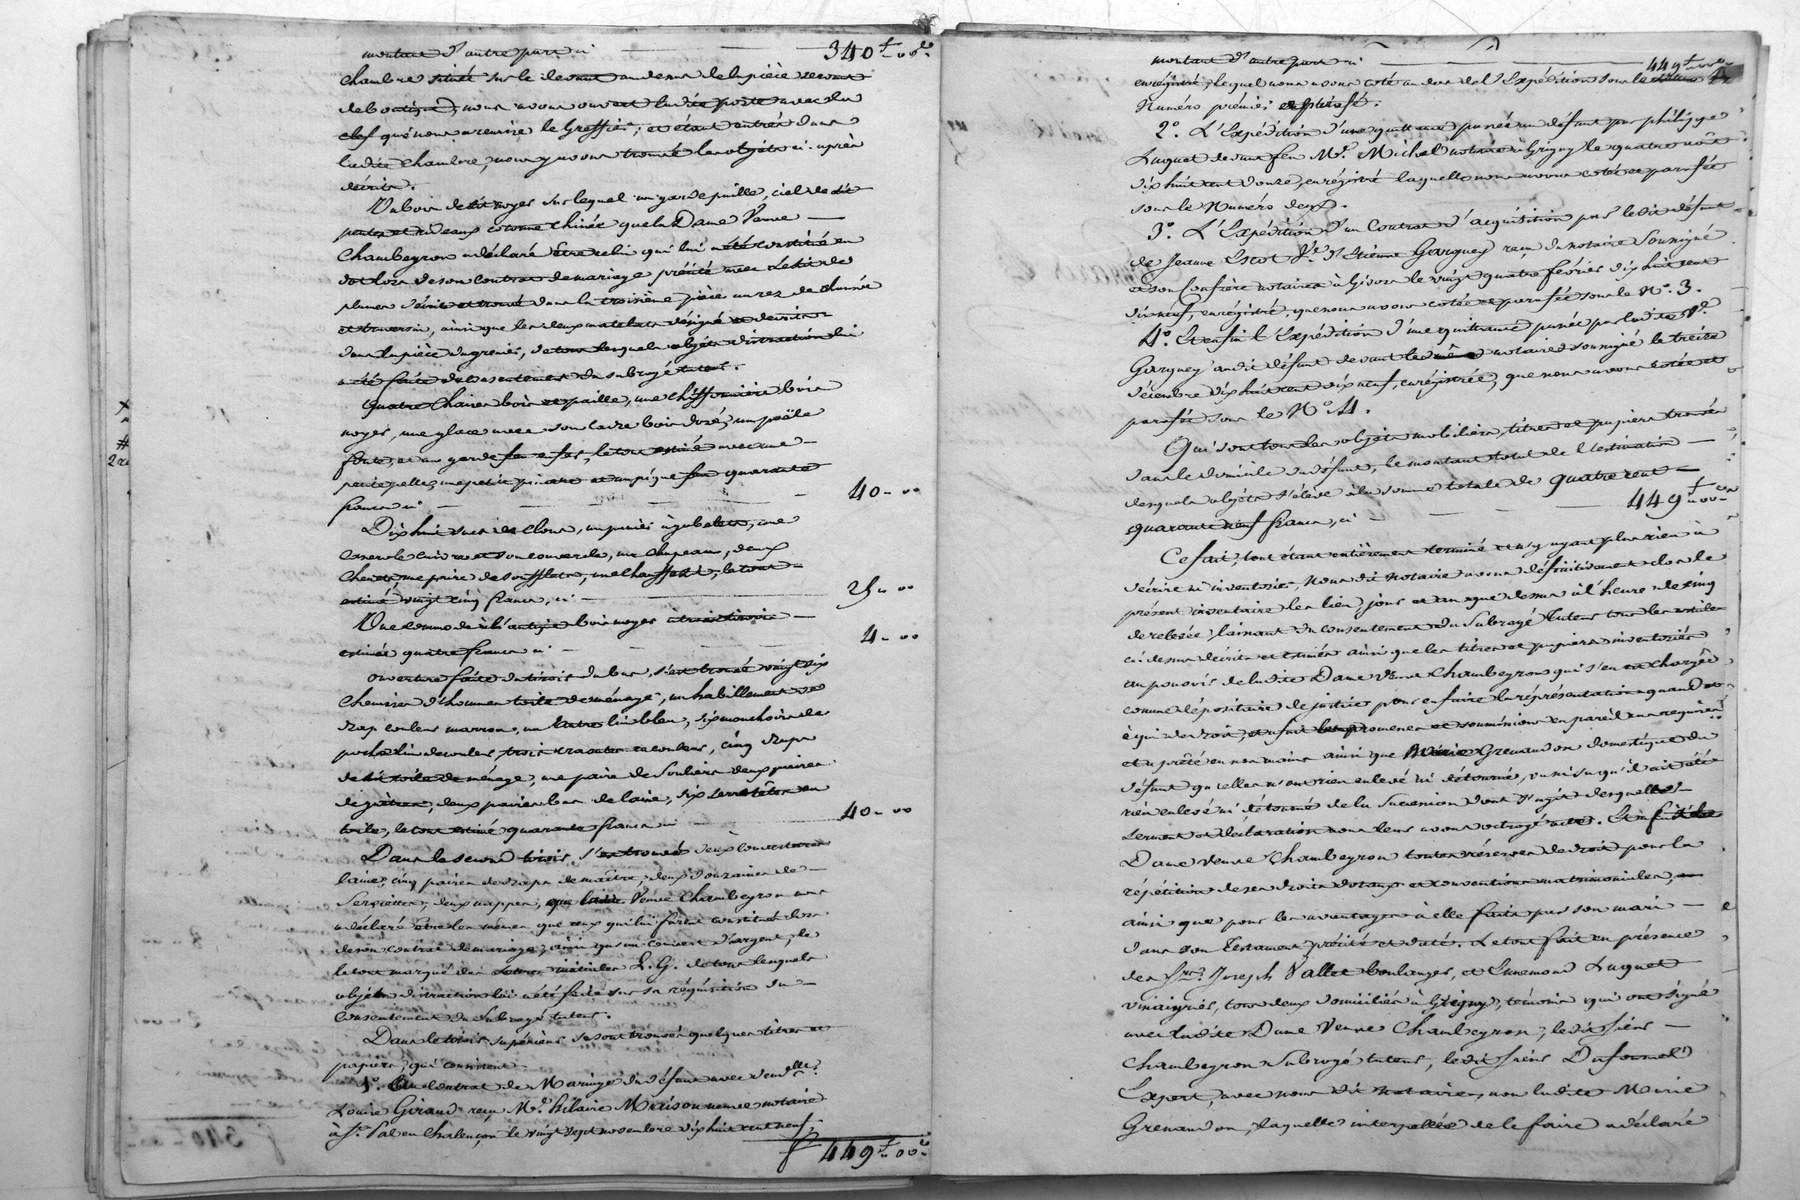 montant d'autre part ci 340 f. 00 c.
chambre située sur le devant au dessus de la pièce servant
de boutique, nous avons ouvert ladite porte avec la
clef que nous a remise le Greffier, et étant entrés dans
ladite chambre, nous y avons trouvé les objets ci-après
décrits.
Un bois de lit noyer sur lequel un garde paille, ciel de lit
pentes et rideaux cotonne chinée que la Dame Veuve
Chambeyron a déclaré être celui qui lui a été constitué en
dot lors de son contrat de mariage précité avec le lit de
plumes décrit et trouvé dans la troisième pièce au rez de chaussée
et traversin, ainsi que les deux matelats désigné et décrits
dans la pièce du grenier, de tous lesquels objets distraction lui
a été faite du consentement du subrogé tuteur.
Quatre chaises bois et paille, une chiffonnière bois
noyer, une glace avec son cadre bois doré, un poële
fonte, et un garde feu en fer, le tout estimé avec une
petite pelle, une petite pincette et un pique feu quarante
francs ci 40 - 00
Dix huit sacs de clous, un panier à gobelets, une
casserole cuivre et son couvercle, un chapeau, deux
chenets, une paire de soufflets, une chauffrette, le tout
estimé vingt cinq francs, ci 25 - 00
Une commode à l'antique bois noyer à trois tiroirs
estimée quatre francs ci 4 - 00
Ouverture faite du tiroir du bas, s'est trouvé vingt six
chemises d'homme toile de ménage, un habillement de
drap couleur marron, un autre bleu, six mouchoirs de
poche de couleur, trois cravates en couleur, cinq draps
de lit toile de ménage, une paire de souliers deux paires
de guêtres, deux paires bas de laine, six serre têtes en
toile, le tout estimé quarante francs ci 40 - 00
Dans le second tiroir, s'est trouvé deux couvertures
laine, cinq paires de draps de maître, deux douzaines de
serviettes, deux nappes, que ladite Veuve Chambeyron nous
a déclaré être les mêmes que ceux qui lui furent constitués lors
de son contrat de mariage, ainsi qu'un couvert d'argent, le
le tout marqué des lettres initiales L. G. de tous lesquels
objets distraction lui a été faite sur sa réquisition du
consentement du subrogé tuteur.
Dans le tiroir supérieur se sont trouvés quelques titres et
papiers, qui consistent
1°. Au contrat de Mariage du défunt avec demelle
Louise Giraud reçu Me. hilaire Maisonneuve notaire
à St. Pal en Chalençon le vingt sept novembre dix huit cent neuf,
f 449 f. 00 c.
montant d'autre part ci 449 f. 00 c.
enrégistré, lequel nous avons coté au dos de l'Expédition sous le
Numéro premier et paraffé.
2°. L'Expédition d'une quittance passée au défunt par philippe
Luquet devant feu Me. Michel notaire à Grigny le quatre août
dix huit cent douze, enrégistré laquelle nous avons cotée et paraffée
sous le Numéro deux.
3°. L'Expédition d'un Contrat d'acquisition par ledit défunt
de Jeanne Escot Ve. d'Etienne Garguey reçu du notaire soussigné
et son confrère notaires à Givors le vingt quatre février dix huit cent
dix neuf, enrégistré, que nous avons cotée et paraffée sous le N°. 3.
4°. Et enfin l'Expédition d'une quittance passée par ladite Ve.
Garguey audit défunt devant le même notaire soussigné le treize
décembre dix huit cent dix neuf, enrégistrée, que nous avons cotée et
paraffée sous le N°. 4.
Qui sont tous les objets mobiliers, titres et papiers trouvés
dans le domicile du défunt, le montant total de l'estimation
desquels objets s'élève à la somme totale de quatre cent
quarante neuf francs, ci 449 f. 00 c.
Ce fait, tout étant entièrement terminé et n'y ayant plus rien à
décrire ni inventorier, Nous dit notaire avons définitivement clos le
présent inventaire les lieu, jour et an que dessus à l'heure de cinq
de relevée, laissant du consentement du Subrogé tuteur tous les meubles
ci dessus décrits et estimés ainsi que les titres et papiers inventoriés
au pouvoir de ladite Dame veuve Chambeyron qui s'en est chargée
comme dépositaire de justice pour en faire la réprésentation quand et
à qui de droit, et a fait les promesses et soumissions en pareil cas requises
et a prêté en nos mains ainsi que Marie Grenaudon domestique du
défunt qu'elles n'ont rien enlevé ni détourné, vu ni su qu'il ait été
rien enlevé ni détourné de la succession dont s'agit desquelles
serment et déclaration nous leur avons octroyé acte. Et a fait ladite
Dame veuve Chambeyron toutes réserves de droit pour la
répétition de ses droits dotaux et conventions matrimoniales,
ainsi que pour les avantages à elle faits par son mari
dans son testament précité et daté. Le tout fait en présence
des Srs. Joseph Vallet boulanger, et Ennemond Luquet
vinaigrier, tous deux domiciliés à Grigny, témoins qui ont signé
avec ladite Dame Veuve Chambeyron, le dit sieur
Chambeyron Subrogé tuteur, le dit sieur Dufournel
Expert, avec nous dit notaire, non ladite Marie
Grenaudon, laquelle interpellée de le faire a déclaré